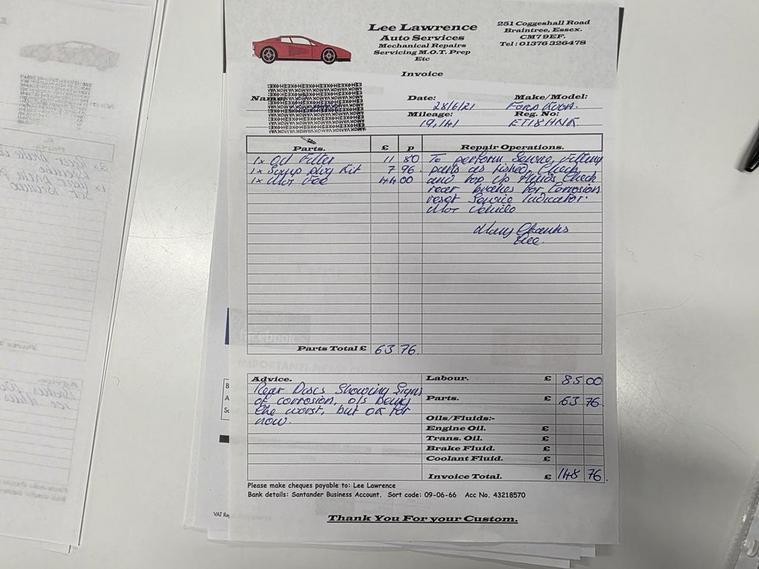 Lee Lawrence
Auto Services
Mechanical Repairs
Servicing M.O.T. Prep
Etc
251 Coggeshall Road
Braintree, Essex.
CM7 9EF.
Tel: 01376 326478
Invoice
Date: 28/6/21
Make/Model: Ford Kuga.
Mileage: 19,141
Reg. No: ET18HNK
Parts. £ p Repair Operations.
1x Oil Filter 11 80 To perform Service, fitting
1x Sump plug Kit 7 96 parts as listed, Check
1x Mot Fee 44 00 and top up fluids Check
rear brakes for Corrosion
reset Service Indicator.
Mot Vehicle
Many Thanks
Lee.
Parts Total £ 63 76.
Advice.
Rear Discs Showing Signs
of corrosion, o/s being
the worst, but ok for
now.
Labour. £ 85 00
Parts. £ 63 76
Oils/Fluids:-
Engine Oil. £
Trans. Oil. £
Brake Fluid. £
Coolant Fluid. £
Invoice Total. £ 148 76.
Please make cheques payable to: Lee Lawrence
Bank details: Santander Business Account. Sort code: 09-06-66 Acc No. 43218570
Thank You For your Custom.